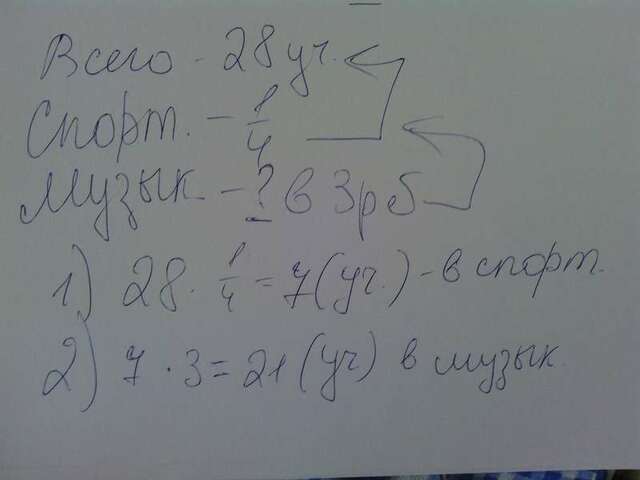 Всего - 28 уч.
Спорт. - 1/4
Музык - ? в 3 р б
1) 28 · 1/4 = 7 (уч.) - в спорт.
2) 7 · 3 = 21 (уч) в музык.